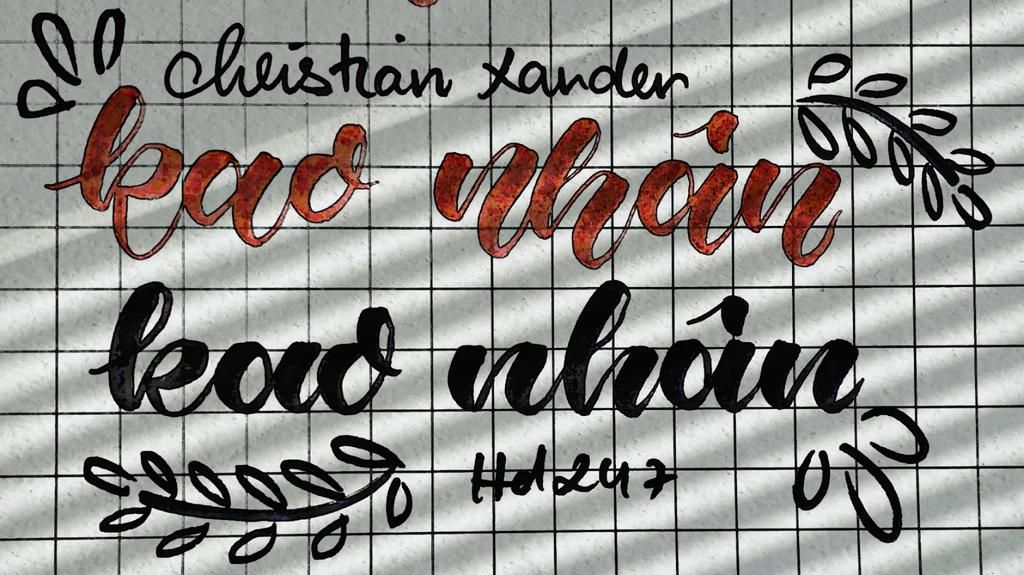 christian xander
kao nhân
kao nhân
Hd247